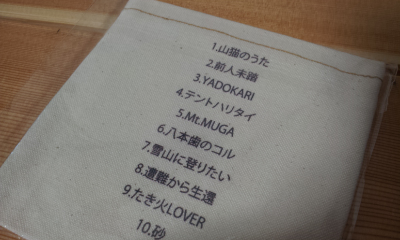 1.山猫のうた
2.前人未踏
3.YADOKARI
4.テントハリタイ
5.Mt.MUGA
6.八本歯のコル
7.雪山に登りたい
8.遭難から生還
9.たき火LOVER
10.砂